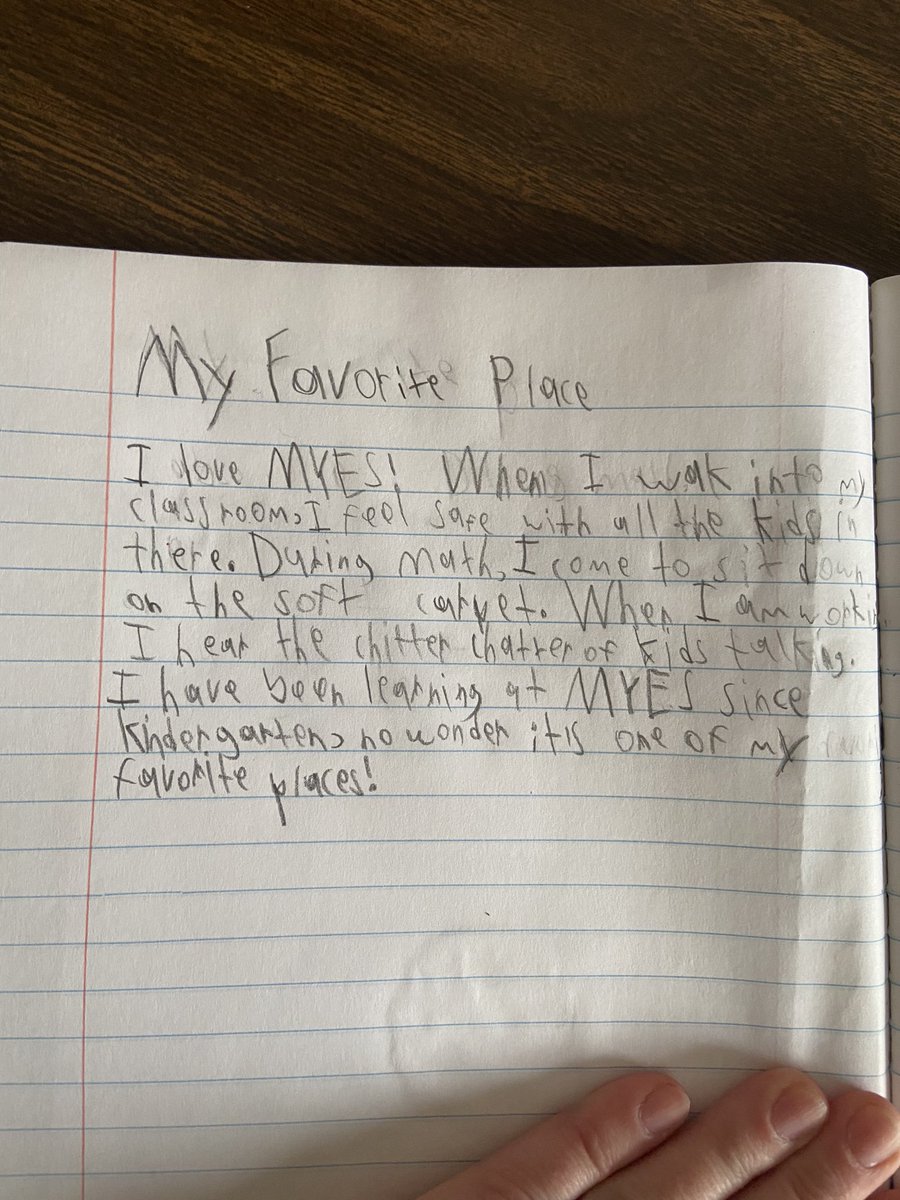 My Favorite Place
I love MYES! When I walk into my
classroom, I feel safe with all the kids in
there. During math, I come to sit down
on the soft carpet. When I am workin
I hear the chitter chatter of kids talking.
I have been learning at MYES since
kindergarten, no wonder it is one of my
favorite places!